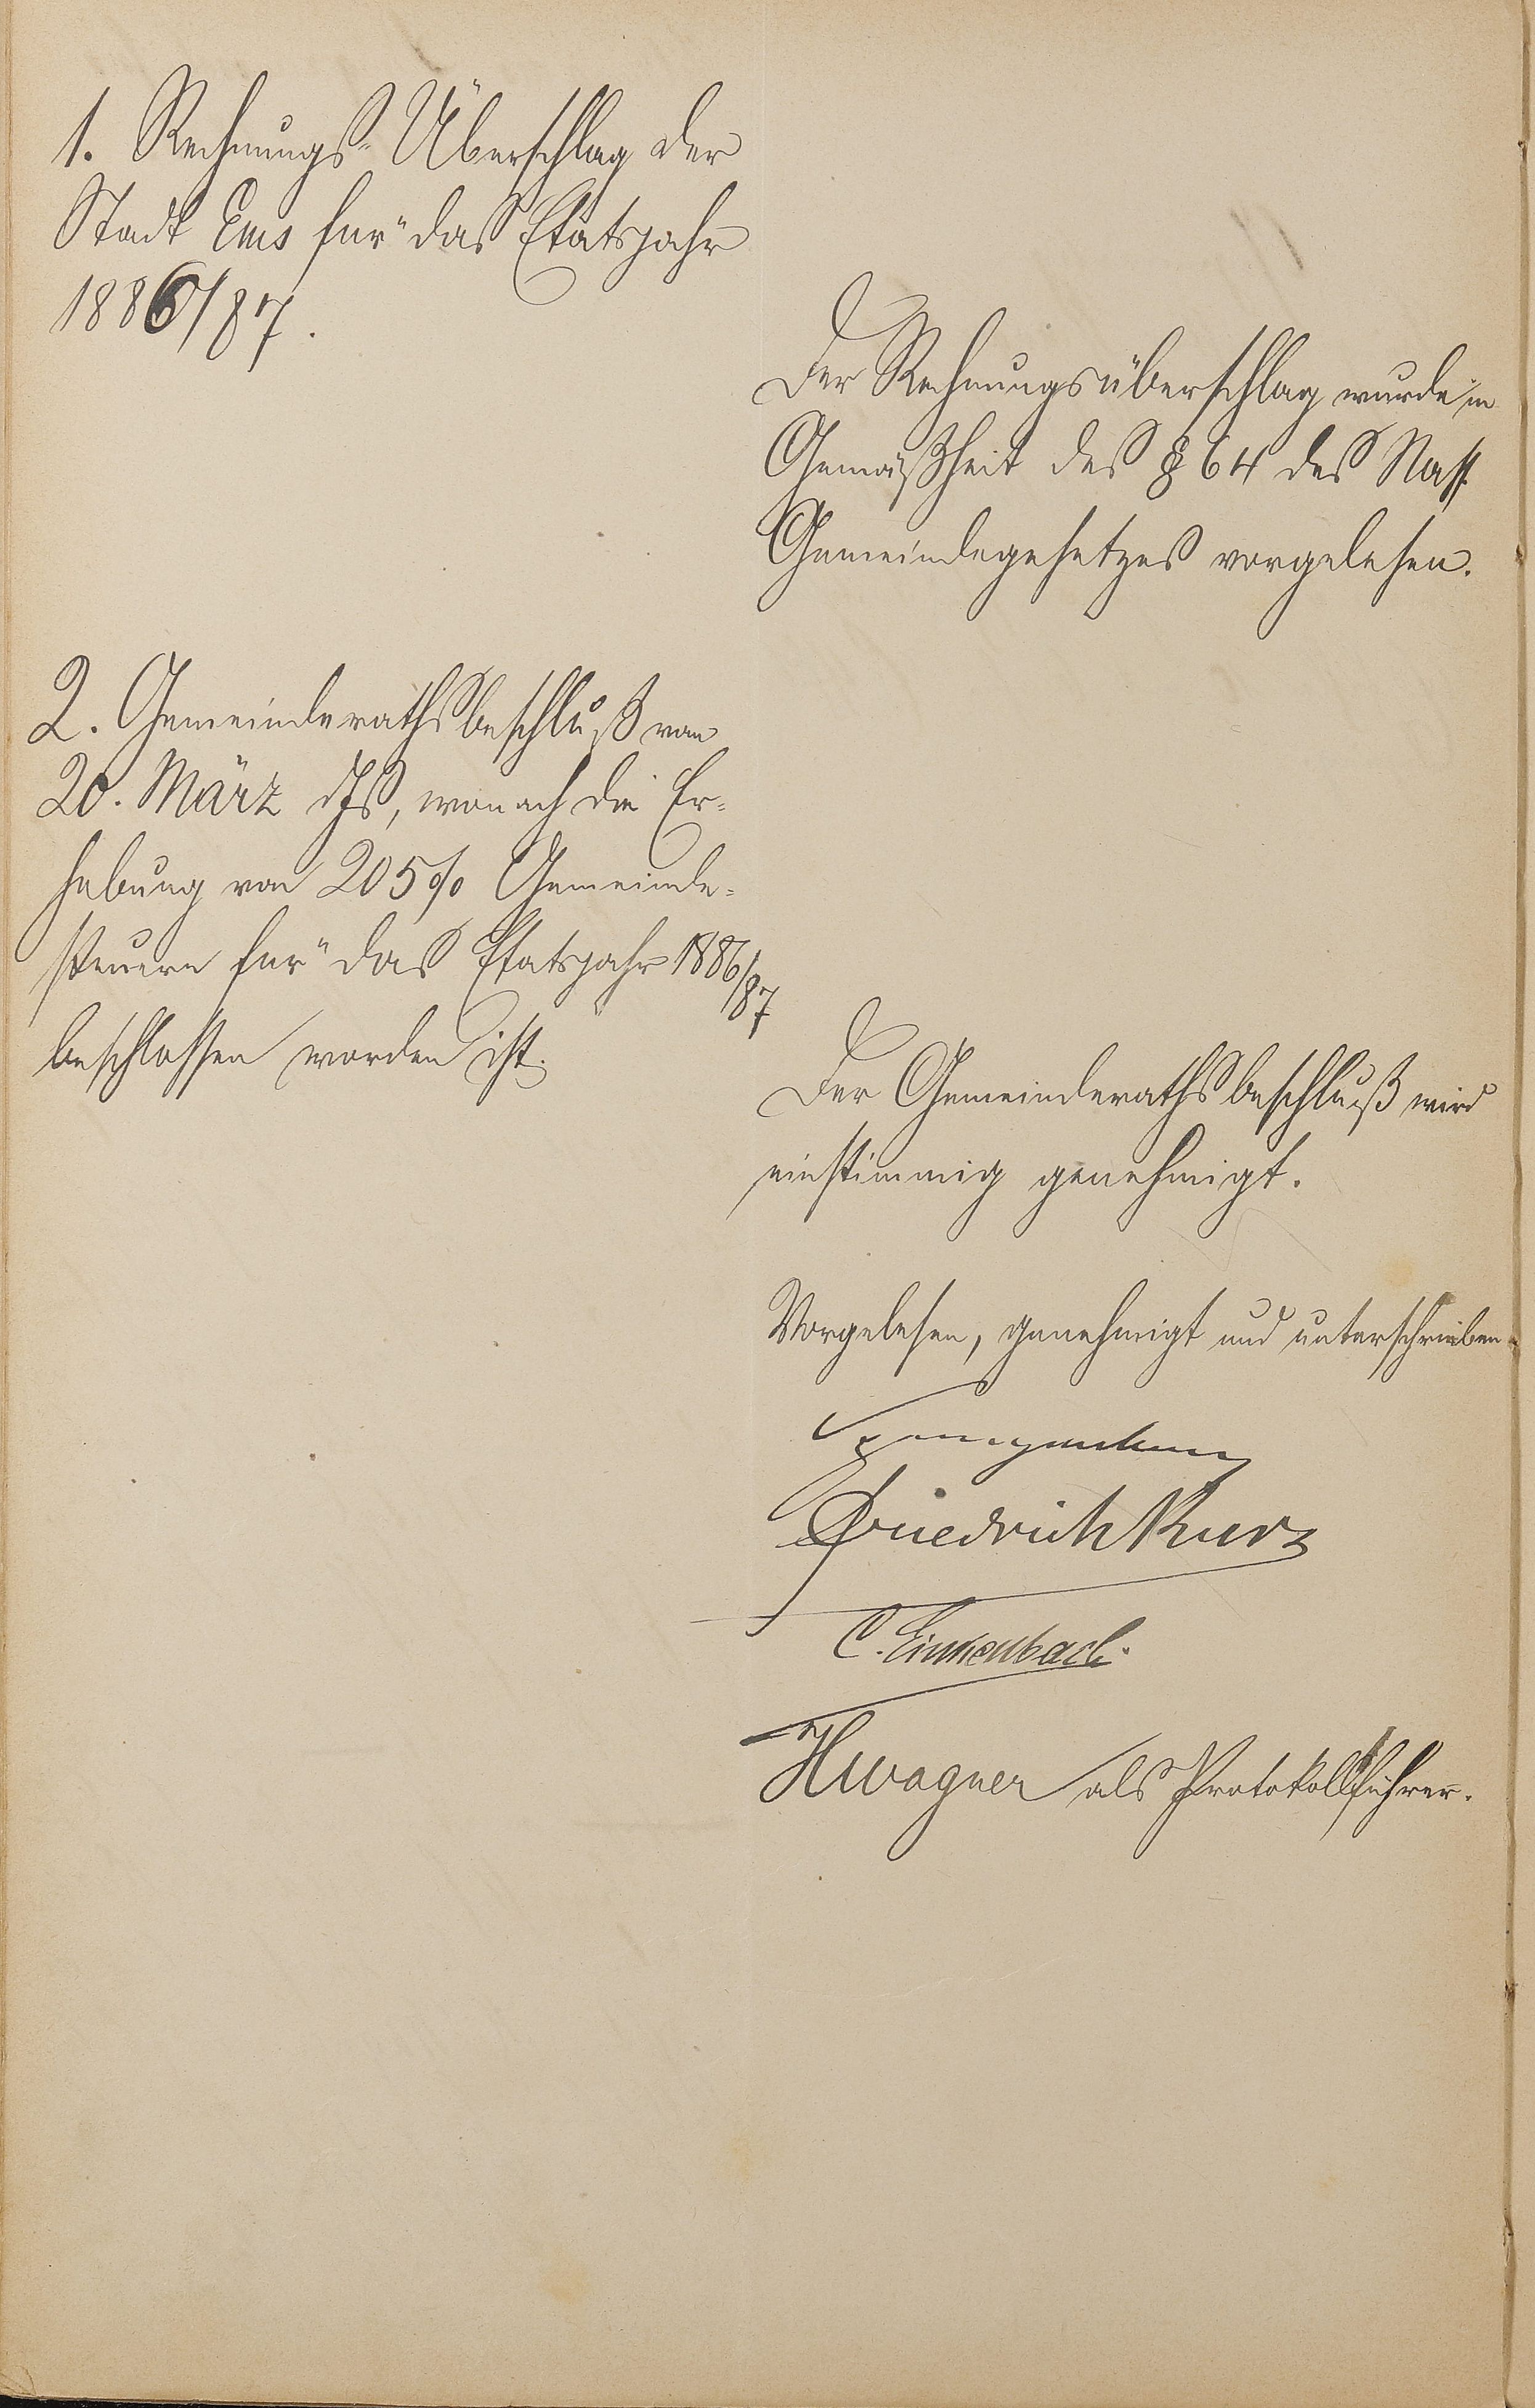 1. Rechnungs-Überschlag der
Stadt Ems für das Etatsjahr
1886/87.
Der Rechnungsüberschlag wurde in
Gemäßheit des § 64 des Nass.
Gemeindegesetzes vorgelesen.
2. Gemeinderathsbeschluß vom
20. März d Js, wonach die Er-
hebung von 205% Gemeinde-
steuern für das Etatsjahr 1886/87
beschlossen worden ist.
Der Gemeinderathsbeschluß wird
einstimmig genehmigt.
Vorgelesen, genehmigt und unterschrieben
Friedrich Kurz
C. Linkenbach.
HWagner als Protokollführer.